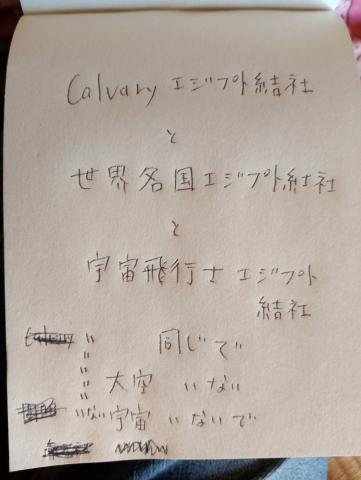 Calvary エジプト結社
と
世界各国エジプト結社
と
宇宙飛行士エジプト
結社
〃 同じで
〃
〃
〃 大空 いない
いない宇宙 いないで